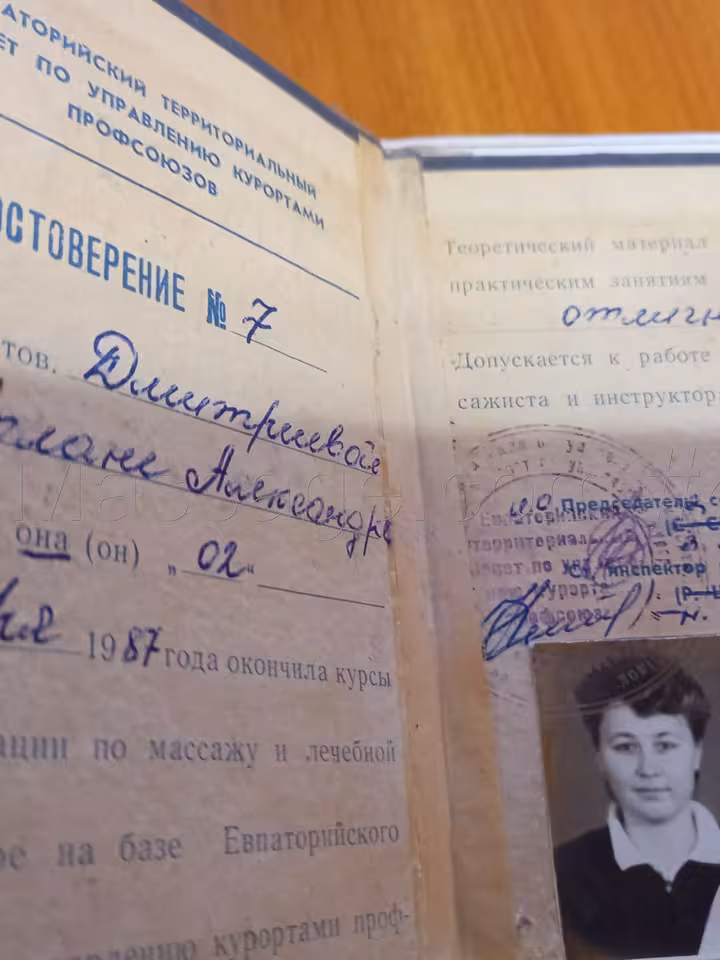 АТОРИЙСКИЙ ТЕРРИТОРИАЛЬНЫЙ
ЕТ ПО УПРАВЛЕНИЮ КУРОРТАМИ
ПРОФСОЮЗОВ
ОСТОВЕРЕНИЕ № 7
тов. Дмитриевой
лане Александр
она (он) „02“
1987 года окончила курсы
ации по массажу и лечебной
ре на базе Евпаторийского
влению курортами проф-
Теоретический материал
практическим занятиям
отличн
Допускается к работе
сажиста и инструктора
и.о. Председатель с
Евпаторийский
территориальный
Совет по управ
Ст. инспектор
нию курорта
рофсоюзо